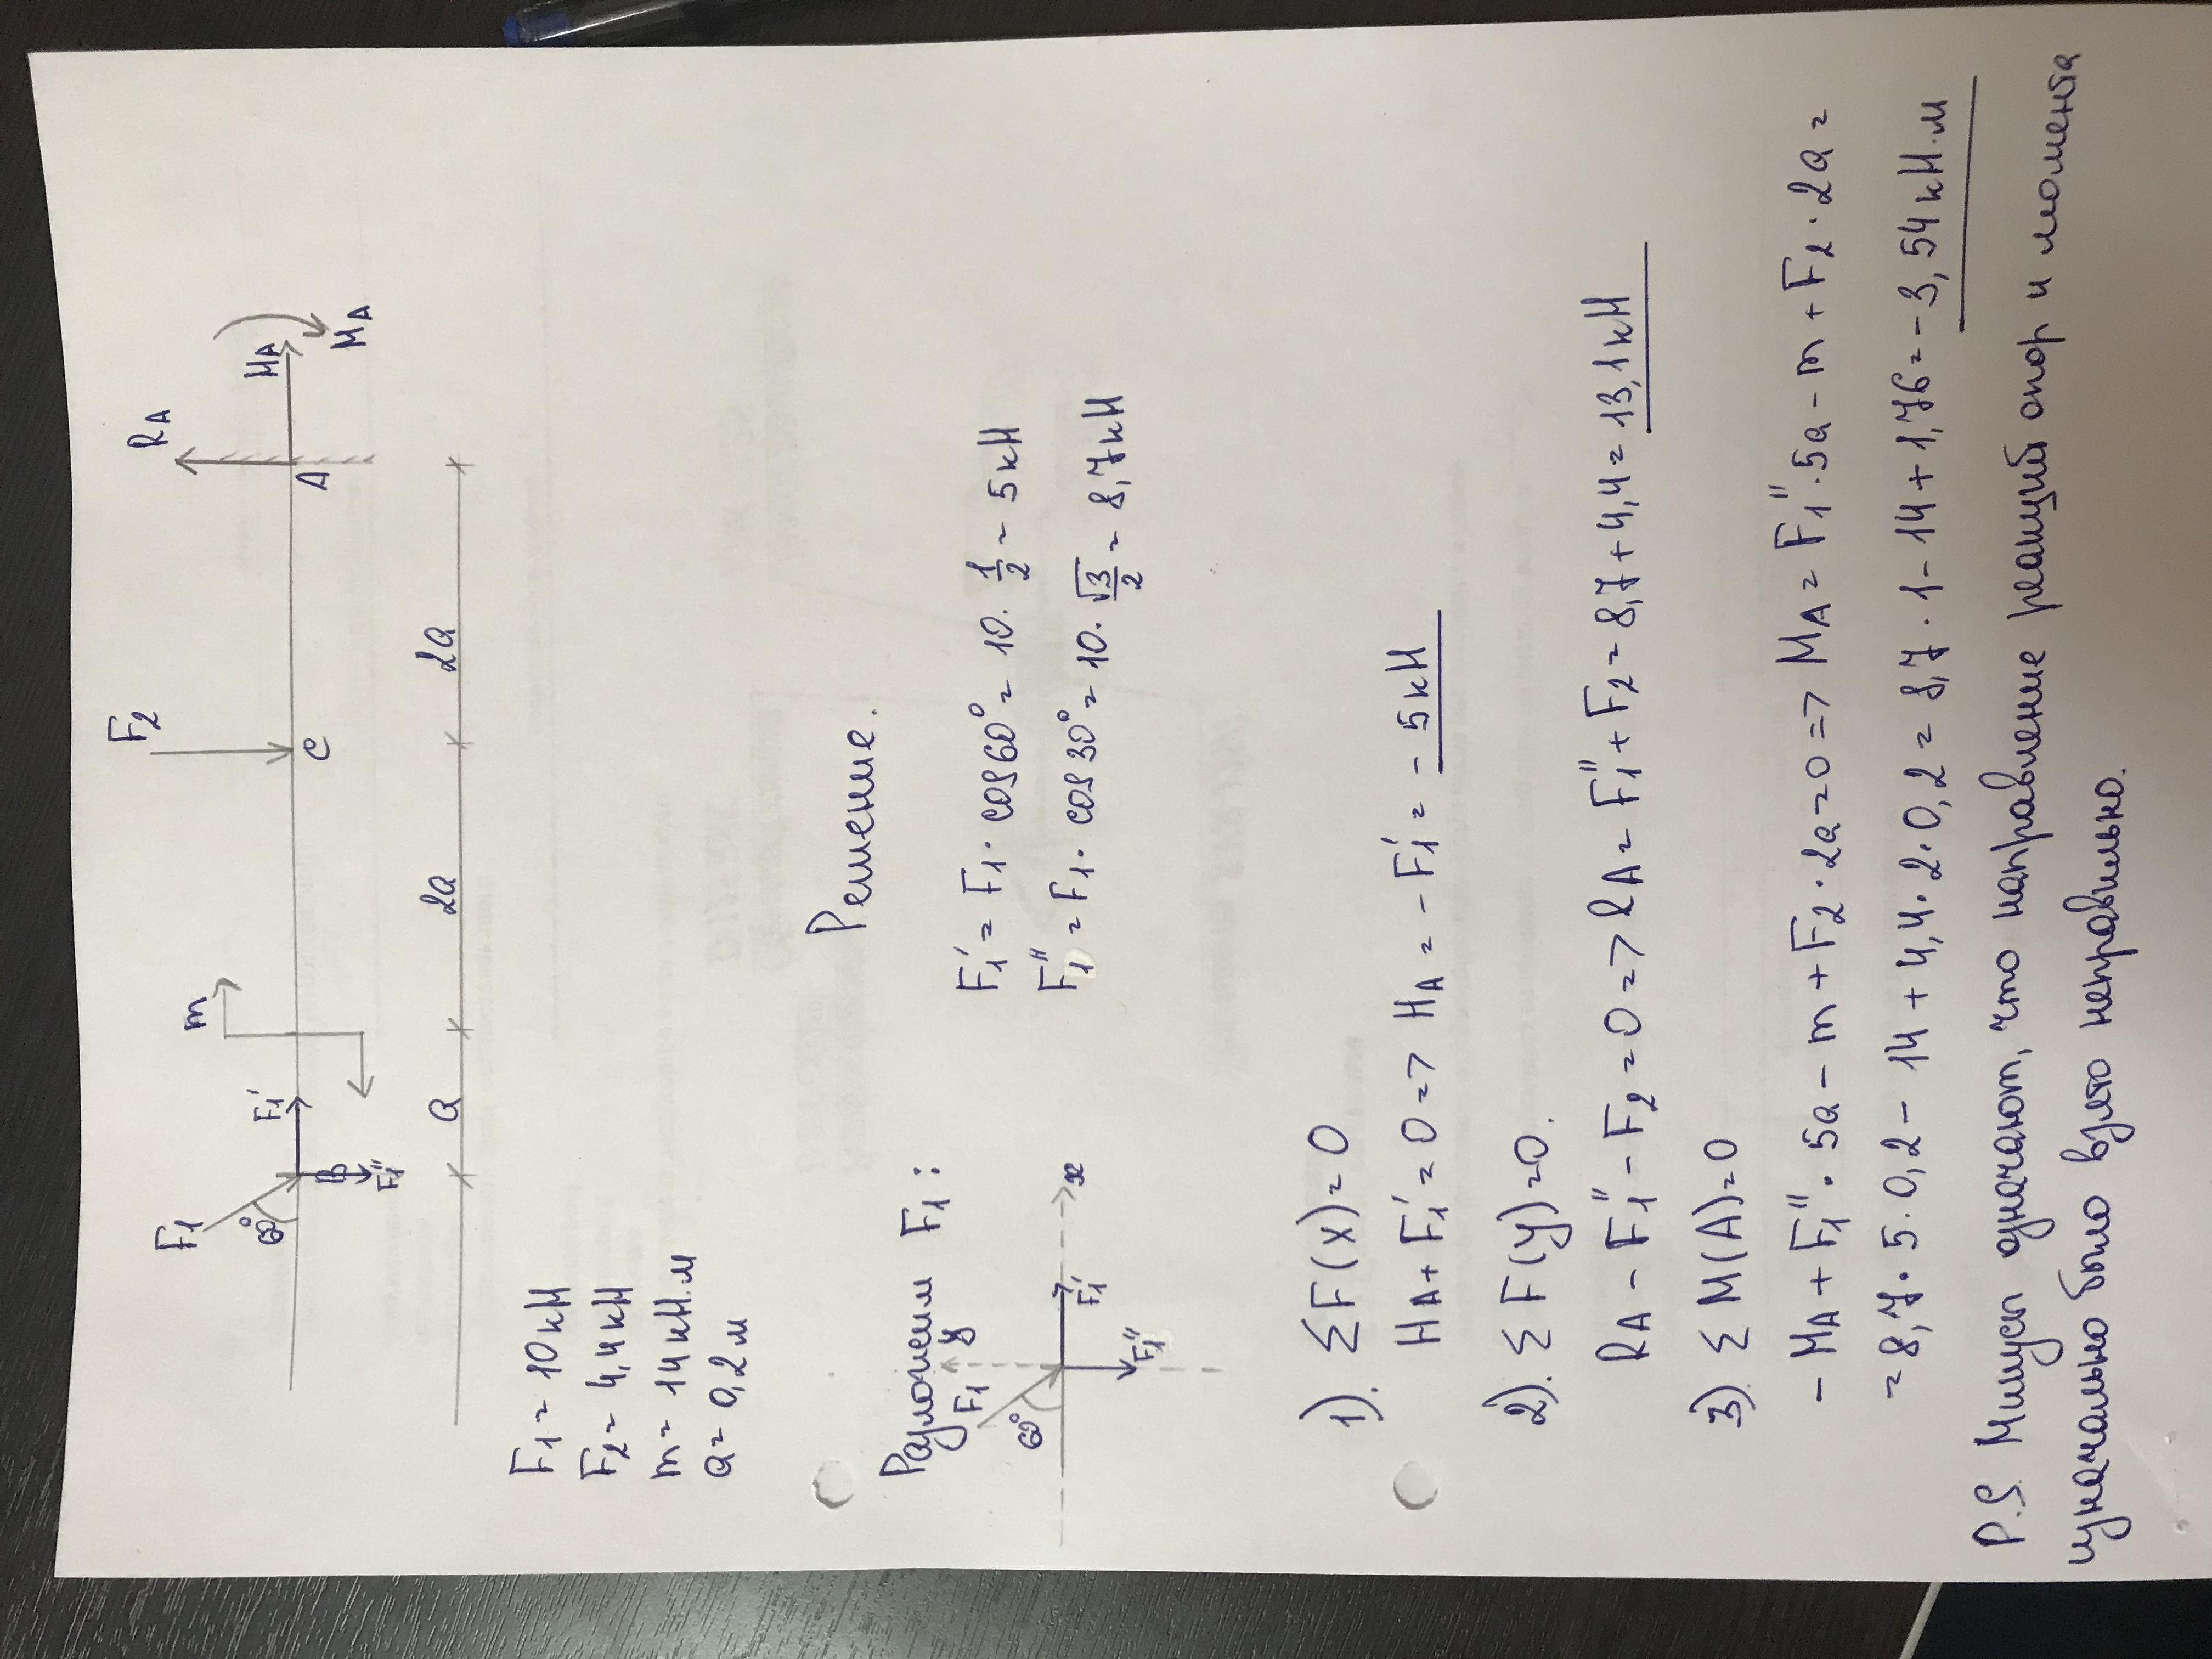 F₁ m F₂ R_A
60° F₁' H_A
B C A M_A
F₁''
a 2a 2a
F₁ = 10кН
F₂ = 4,4кН
m = 14кН.м
a = 0,2м
Решение.
Разложим F₁:
y
F₁
60°
x
F₁'
F₁''
F₁' = F₁ · cos60° = 10 · 1/2 = 5кН
F₁'' = F₁ · cos30° = 10 · √3/2 = 8,7кН
1). ΣF(x)=0
H_A + F₁' = 0 => H_A = - F₁' = - 5кН
2). ΣF(y)=0.
R_A - F₁'' - F₂ = 0 => R_A = F₁'' + F₂ = 8,7 + 4,4 = 13,1кН
3) ΣM(A)=0
- M_A + F₁'' · 5a - m + F₂ · 2a = 0 => M_A = F₁'' · 5a - m + F₂ · 2a =
= 8,7 · 5 · 0,2 - 14 + 4,4 · 2 · 0,2 = 8,7 · 1 - 14 + 1,76 = - 3,54кН.м
P.S Минусы означают, что направление реакций опор и момента
изначально было взято неправильно.